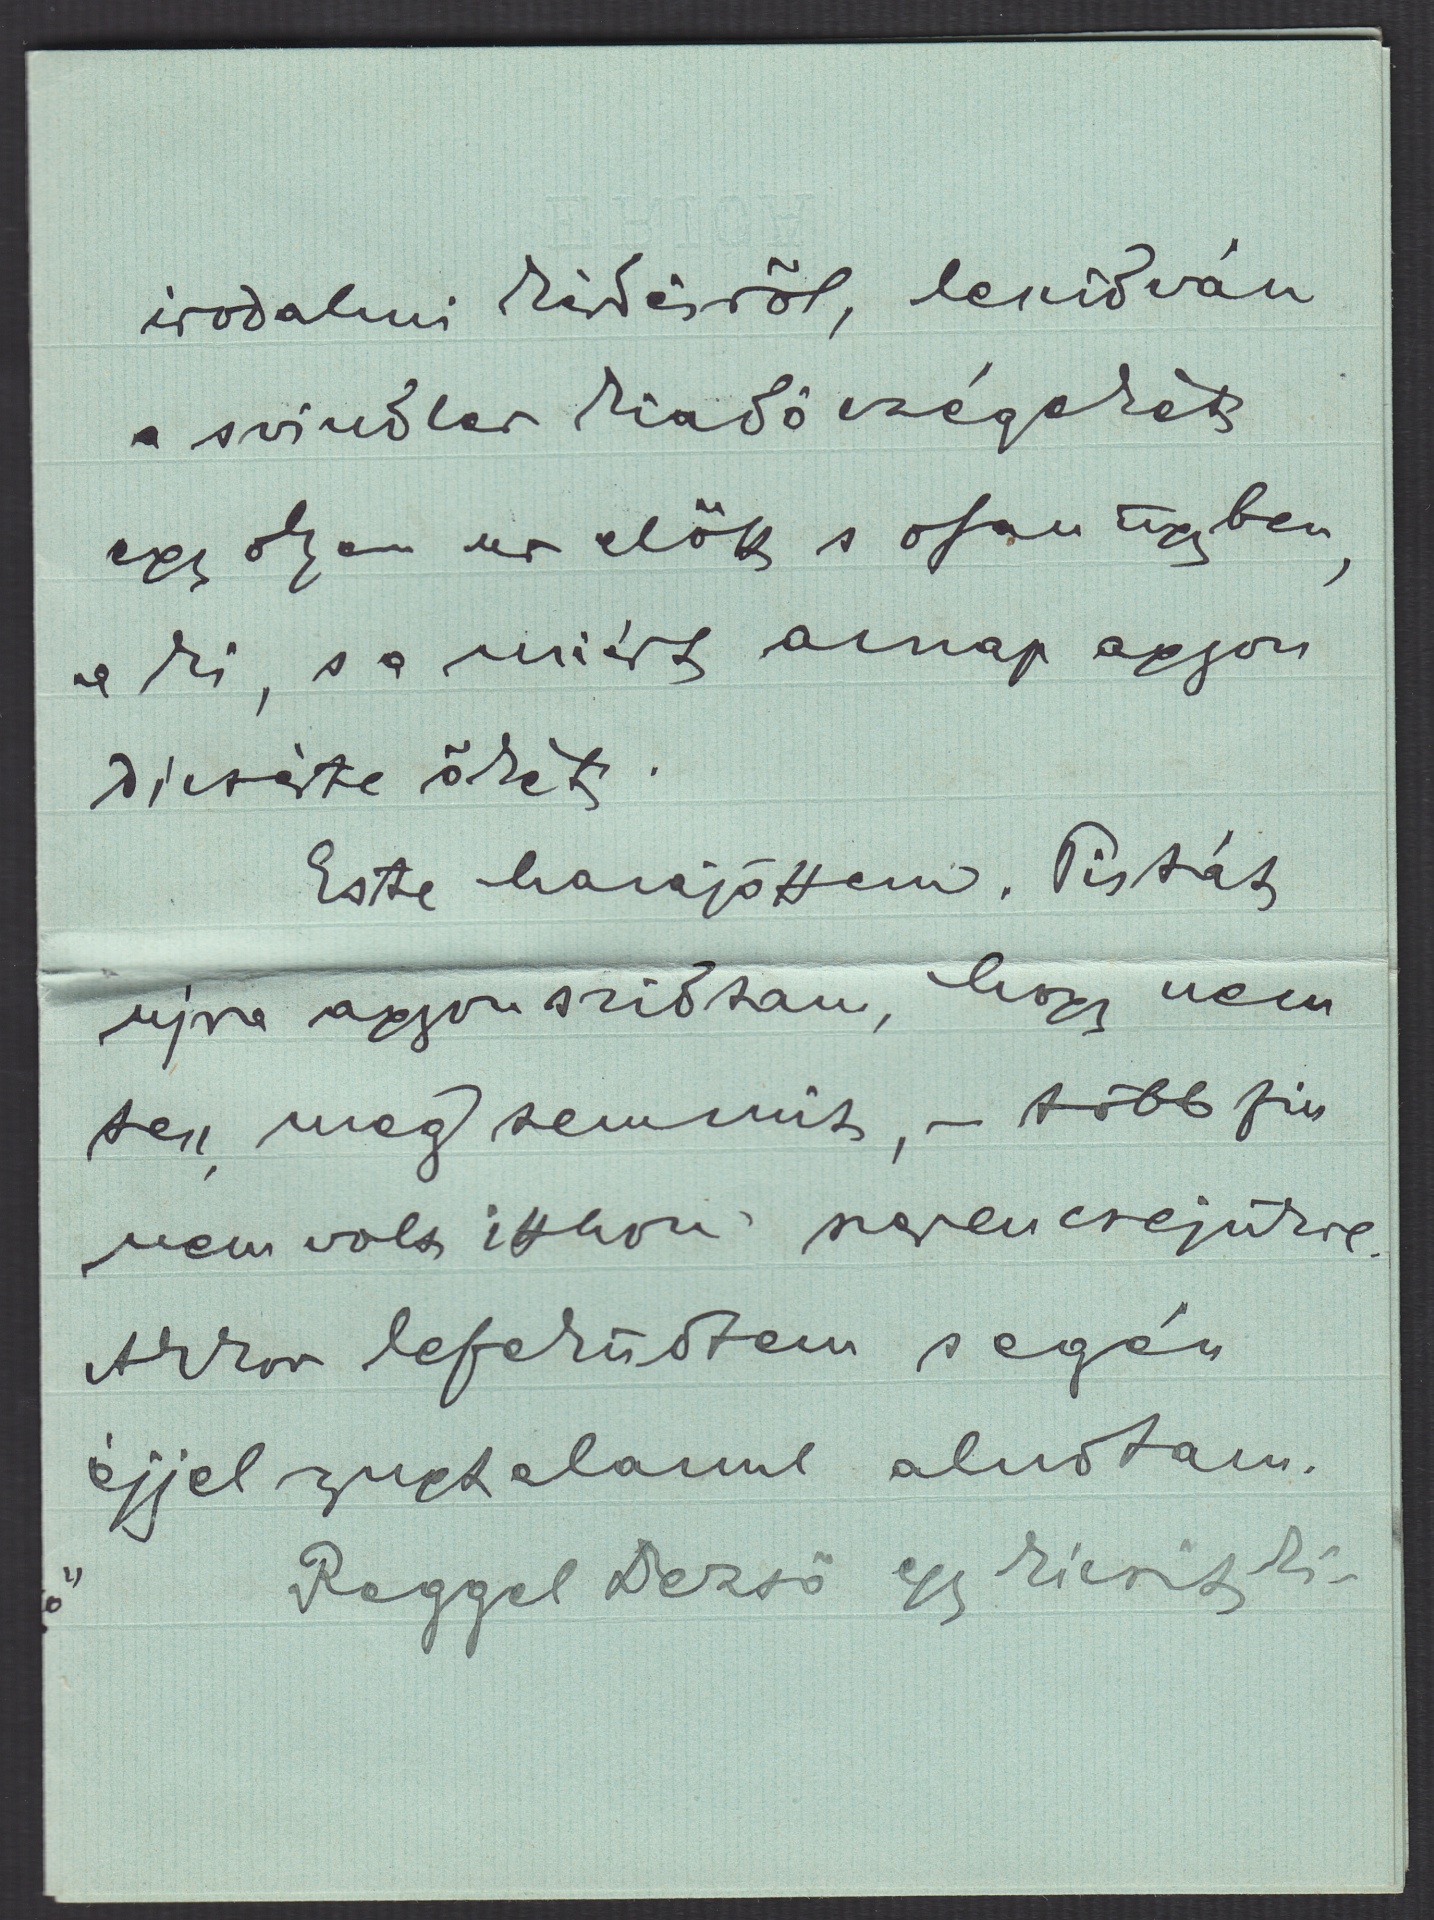 irodalmi kérdésről, leszidván
a svindler kiadóczégeket
egy olyan ur előtt s olyan ügyben,
a ki, s a miért aznap agyon
dicsérte őket.
Este hazajöttem. Pistát
újra agyonszidtam, hogy nem
tesz meg semmit, – több fiu
nem volt itthon szerencséjükre.
Akkor lefeküdtem s egész
éjjel nyugtalanul aludtam.
Reggel Dezső egy kicsit ki-